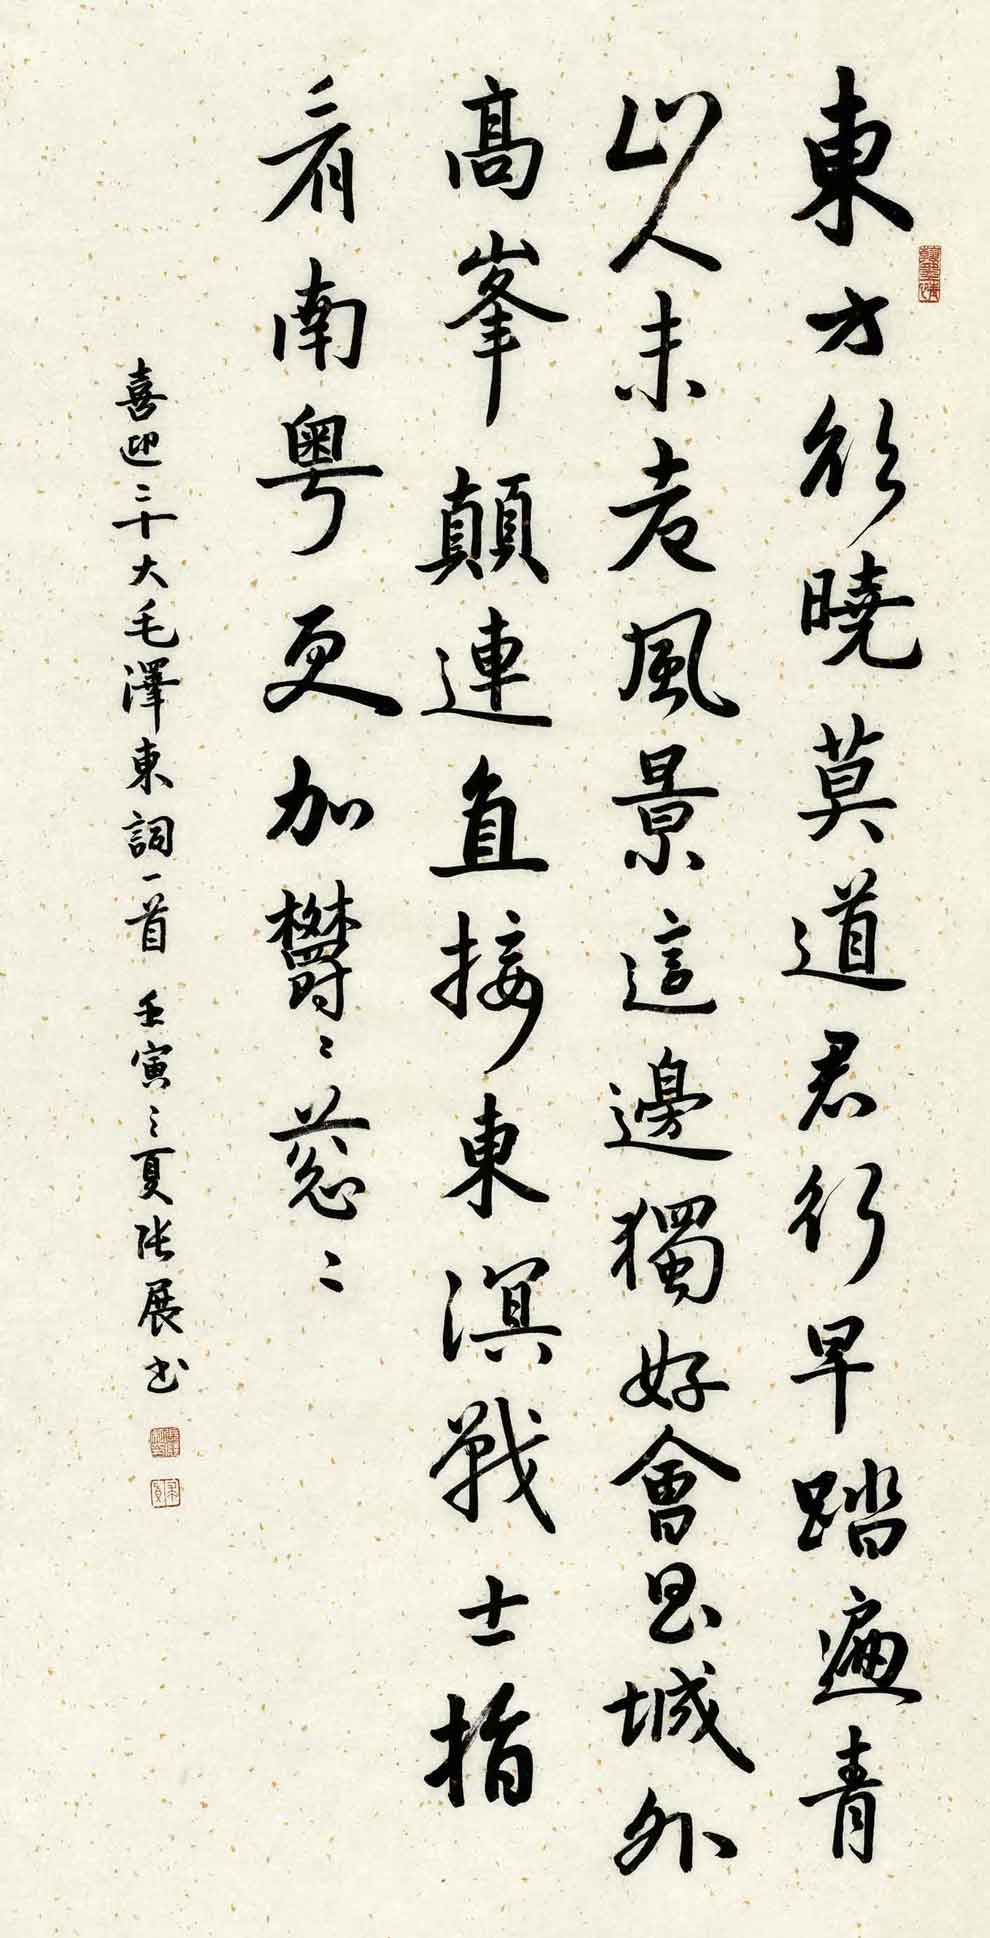 東方欲曉莫道君行早踏遍青
山人未老風景這邊獨好會昌城外
高峯顛連直接東溟戰士指
看南粤更加欝〻葱〻
喜迎二十大毛澤東詞一首 壬寅之夏张展书